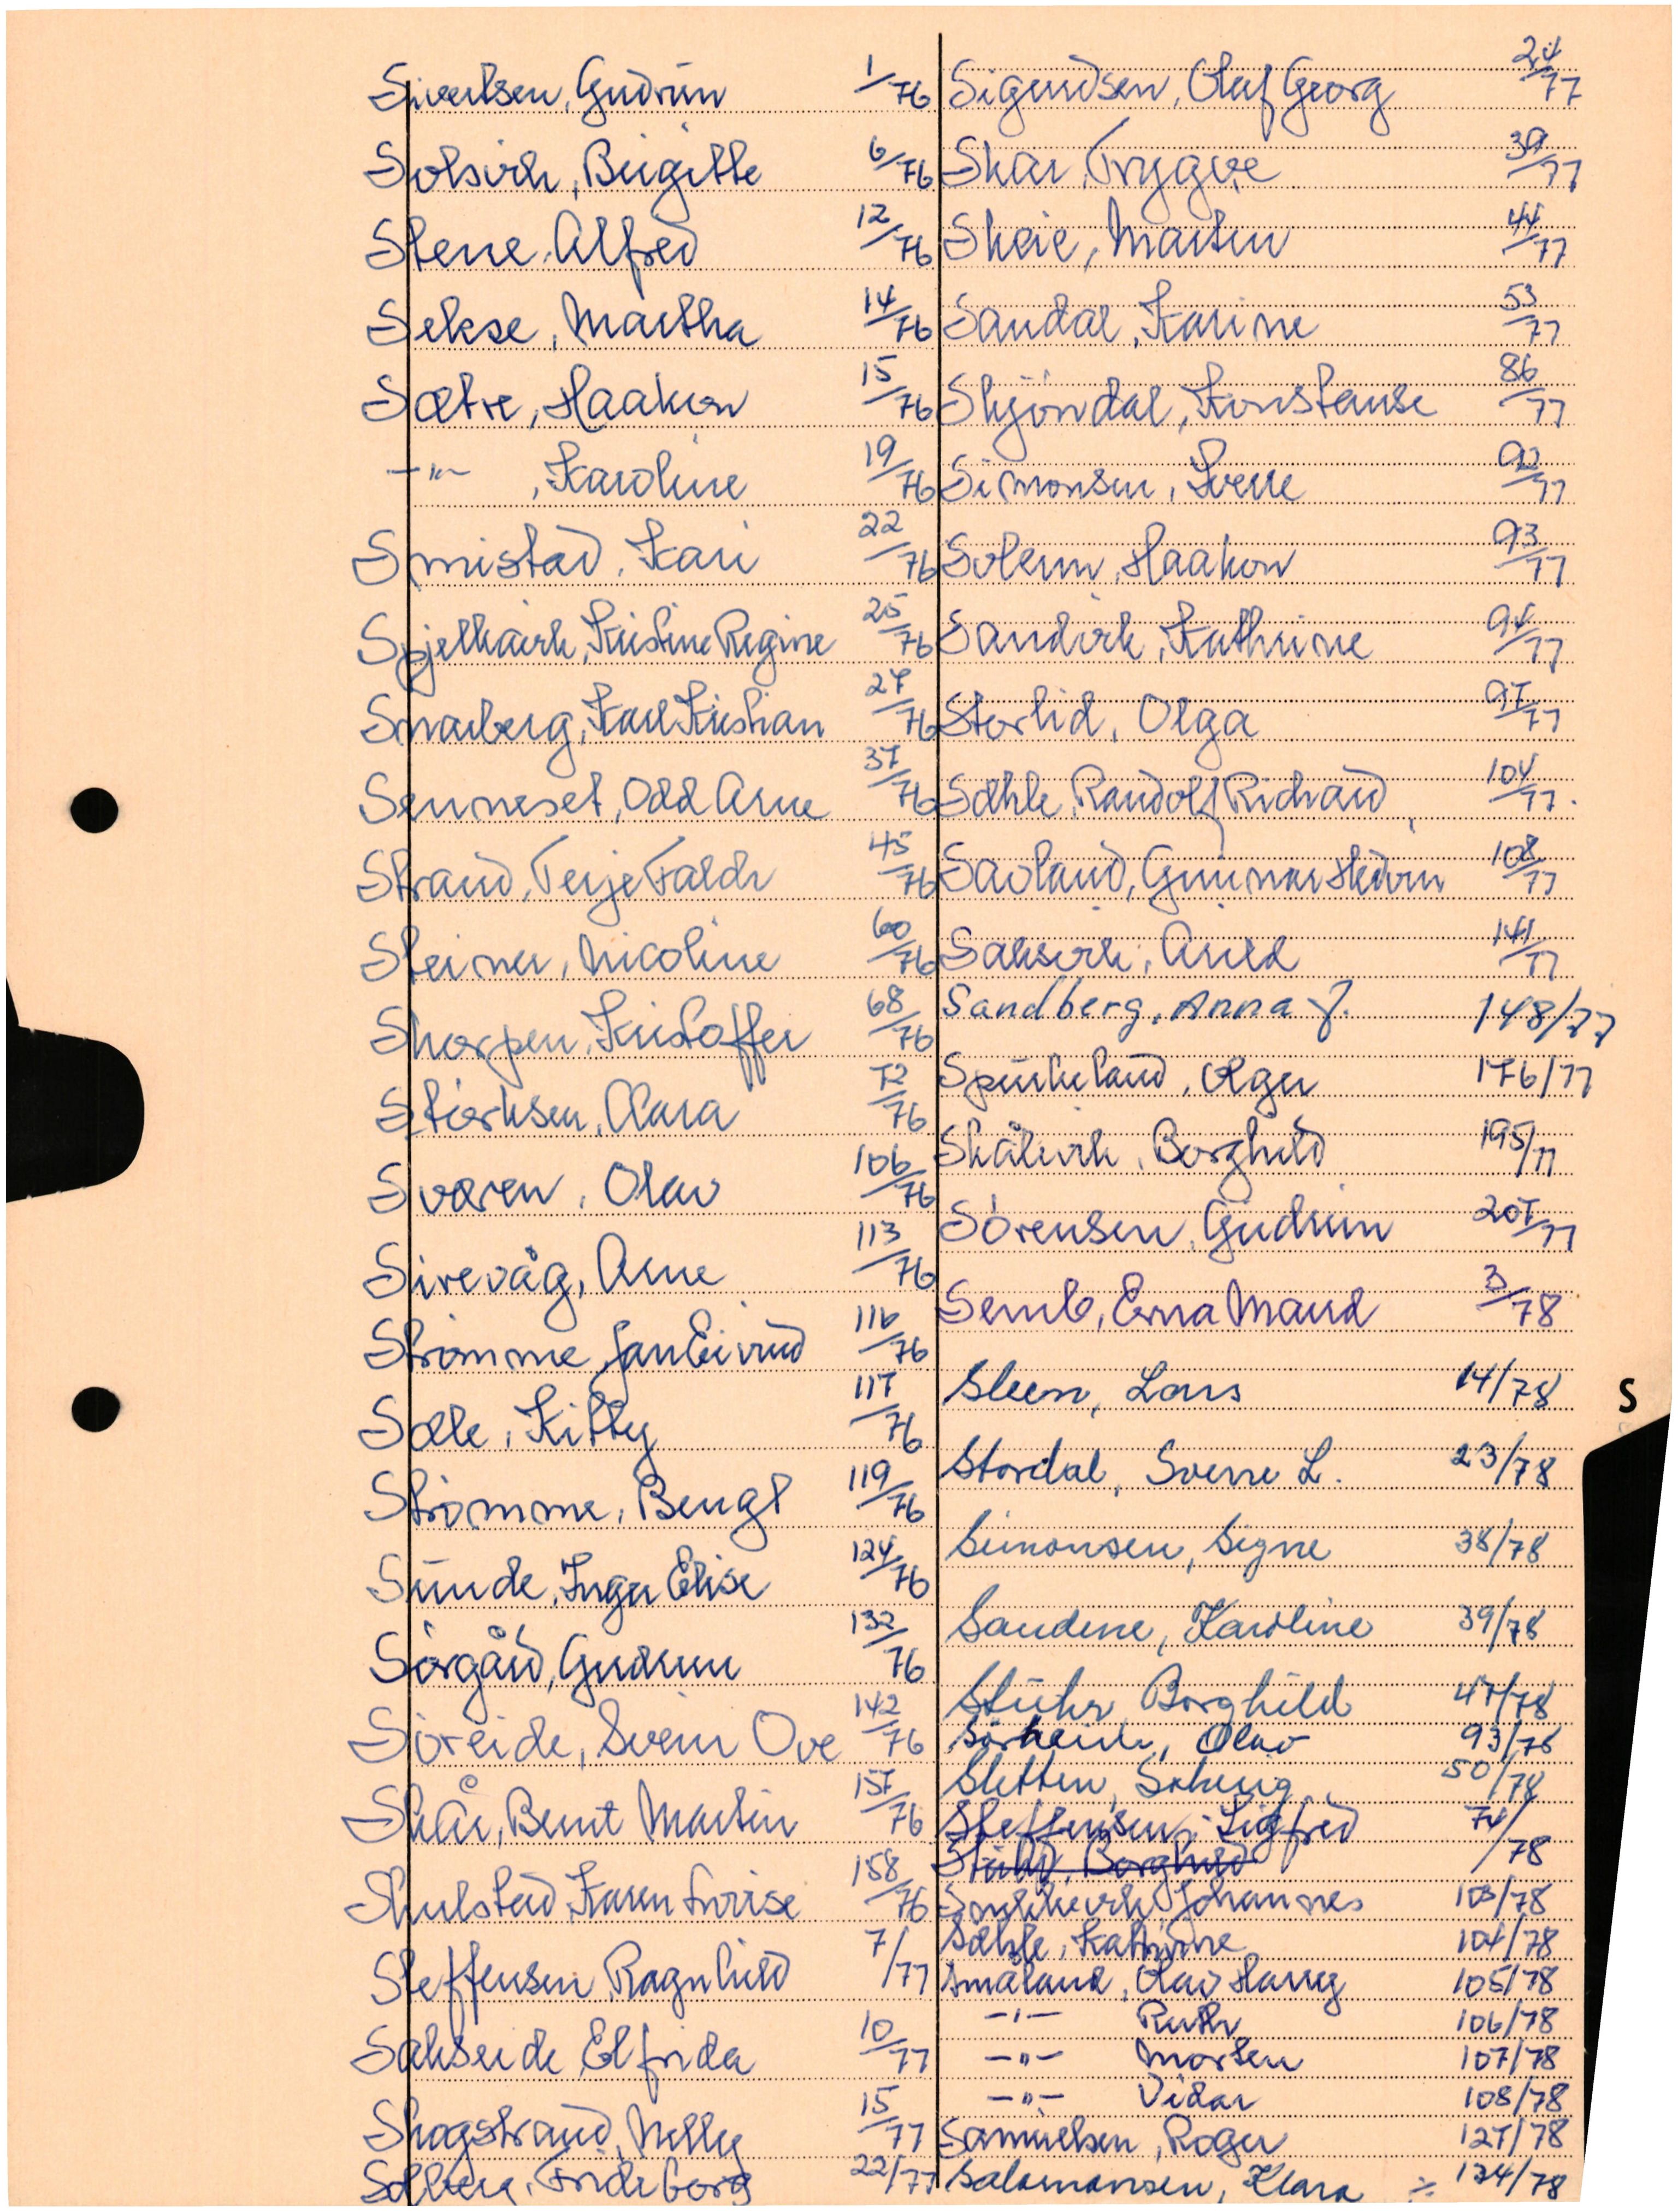 Sivertsen, Gudrun 1/76
Solsvik, Birgitte 6/76
Stene, Alfred 12/76
Sekse, Martha 14/76
Sætre, Haakon 15/76
-"- , Karoline 19/76
Smistad, Kari 22/76
Spjelkavik, Kristine Regine 25/76
Snarberg, Karl Kristian 27/76
Senneset, Odd Arne 37/76
Strand, Terje Falck 45/76
Steiner, Nicoline 60/76
Skorpen, Kristoffer 68/76
Størksen, Clara 72/76
Sværen, Olav 106/76
Sirevåg, Arne 113/76
Strømme, Jan Eivind 116/76
Sæle, Kitty 117/76
Strømme, Bengt 119/76
Sunde, Inger Elise 124/76
Sørgård, Gudrun 132/76
Søreide, Svein Ove 142/76
Skår, Bernt Martin 157/76
Skulstad, Karen Lovise 158/76
Steffensen, Ragnhild 7/77
Sakseide, Elfrida 10/77
Skogstrand, Nelly 15/77
Solberg, Frideborg 22/77
Sigurdsen, Olaf Georg 24/77
Skar, Trygve 39/77
Skeie, Martin 44/77
Sandal, Karine 53/77
Skjöndal, Konstanse 86/77
Simonsen, Sverre 92/77
Solem, Haakon 93/77
Sandvik, Kathrine 94/77
Storlid, Olga 97/77
Sæhle, Randolf Richard 104/77
Savland, Gunnar Hedvin 108/77
Saksvik, Arild 141/77
Sandberg, Anna J. 148/77
Spurkeland, Olger 176/77
Skålevik, Borghild 195/77
Sörensen, Gudrun 207/77
Semb, Erna Maud 3/78
Steen, Lars 14/78
Stordal, Sverre L. 23/78
Simonsen, Signe 38/78
Sandene, Karoline 39/78
Stuhr, Borghild 47/78
Sørheim, Olav 93/78
Sletten, Solveig 50/78
Steffensen, Sigfred 74/78
Borghild
Johannes 103/78
Sæhle, Kathrine 104/78
Småland, Olav Harry 105/78
-"- Ruth 106/78
-"- Morten 107/78
-"- Vidar 108/78
Samuelsen, Roger 127/78
Salamonsen, Klara 134/78
S